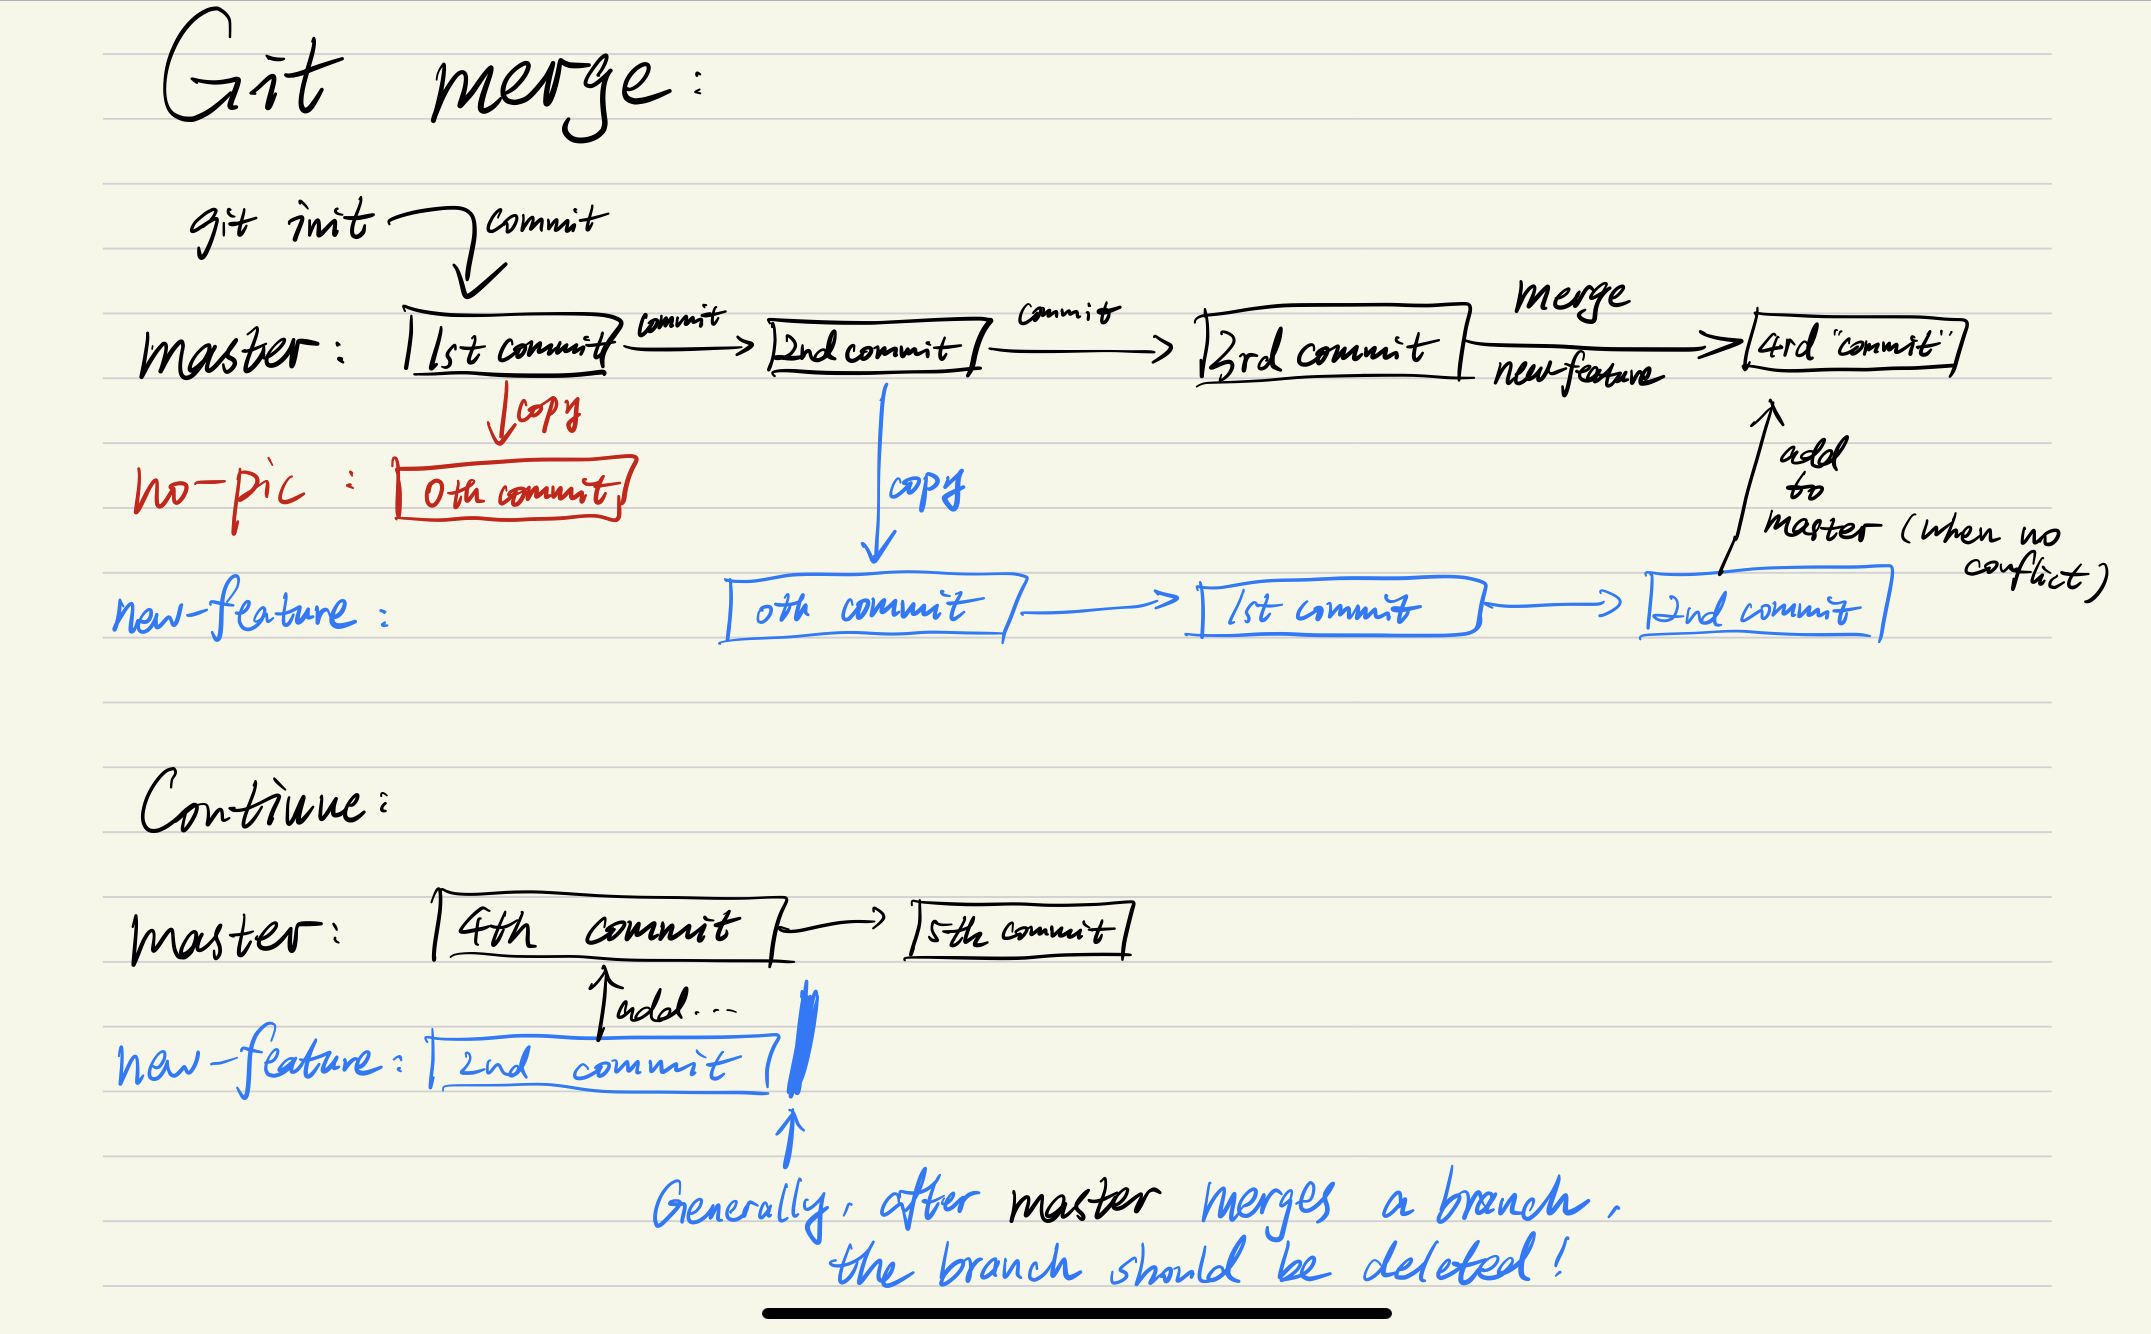 Git merge:
git init commit
master: 1st commit commit 2nd commit commit 3rd commit merge new-feature 4rd "commit"
copy
no-pic: 0th commit
copy
add
to
master (when no
conflict)
new-feature: 0th commit 1st commit 2nd commit
Continue:
master: 4th commit 5th commit
add...
new-feature: 2nd commit
Generally, after master merges a branch,
the branch should be deleted!